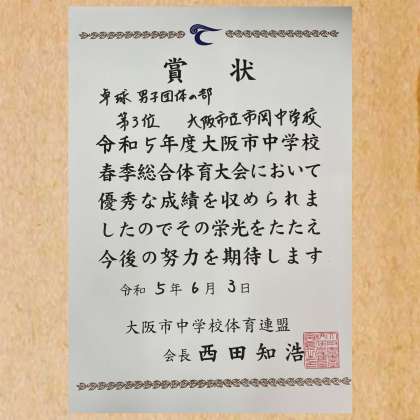 賞状
卓球 男子団体の部
第3位 大阪市立市岡中学校
令和5年度大阪市中学校
春季総合体育大会において
優秀な成績を収められま
したのでその栄光をたたえ
今後の努力を期待します
令和5年6月3日
大阪市中学校体育連盟
会長 西田知浩